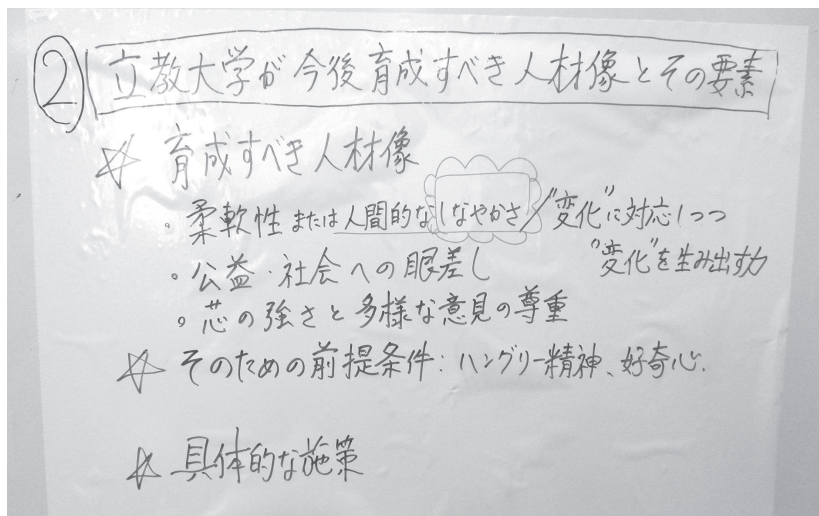 ② 立教大学が今後育成すべき人材像とその要素
☆ 育成すべき人材像
・柔軟性 または人間的なしなやかさ/"変化"に対応しつつ
"変化"を生み出す力
・公益・社会への眼差し
・芯の強さと多様な意見の尊重
☆ そのための前提条件:ハングリー精神、好奇心.
☆ 具体的な施策